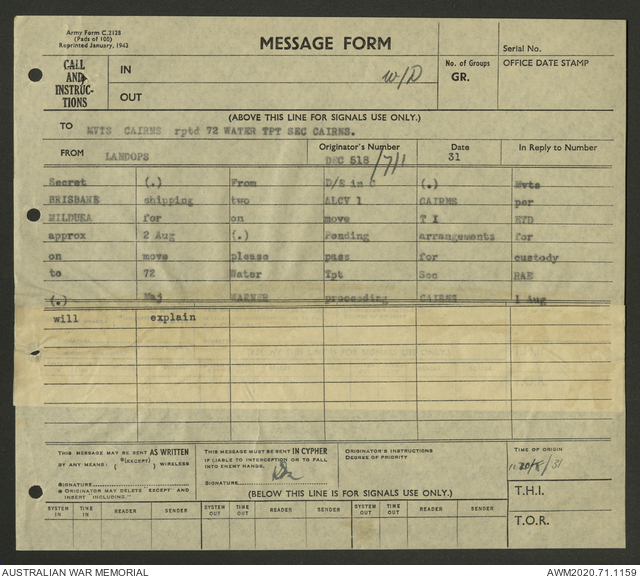 Army Form C.2128
(Pads of 100)
Reprinted January, 1943
MESSAGE FORM
Serial No.
CALL AND INSTRUC-TIONS
IN
W/D
No. of Groups
GR.
OFFICE DATE STAMP
OUT
(ABOVE THIS LINE FOR SIGNALS USE ONLY.)
TO MVTS CAIRNS rptd 72 WATER TPT SEC CAIRNS.
FROM LANDOPS
Originator's Number
DEC 518 /7/1
Date
31
In Reply to Number
Secret (.) From D/E in C (.) Mvts
BRISBANE shipping two ALCV 1 CAIRNS per
MILDURA for on move T I ETD
approx 2 Aug (.) Pending arrangements for
on move please pass for custody
to 72 Water Tpt Sec RAE
(.) Maj WARNER proceeding CAIRNS 1 Aug
will explain
THIS MESSAGE MAY BE SENT AS WRITTEN
BY ANY MEANS: (*(EXCEPT) ) WIRELESS
SIGNATURE
* ORIGINATOR MAY DELETE "EXCEPT" AND
INSERT "INCLUDING."
THIS MESSAGE MUST BE SENT IN CYPHER
IF LIABLE TO INTERCEPTION OR TO FALL
INTO ENEMY HANDS.
SIGNATURE
ORIGINATOR'S INSTRUCTIONS
DEGREE OF PRIORITY
TIME OF ORIGIN
(BELOW THIS LINE IS FOR SIGNALS USE ONLY.)
T.H.I.
SYSTEM IN TIME IN READER SENDER SYSTEM OUT TIME OUT READER SENDER SYSTEM OUT TIME OUT READER SENDER
T.O.R.
AUSTRALIAN WAR MEMORIAL
AWM2020.71.1159